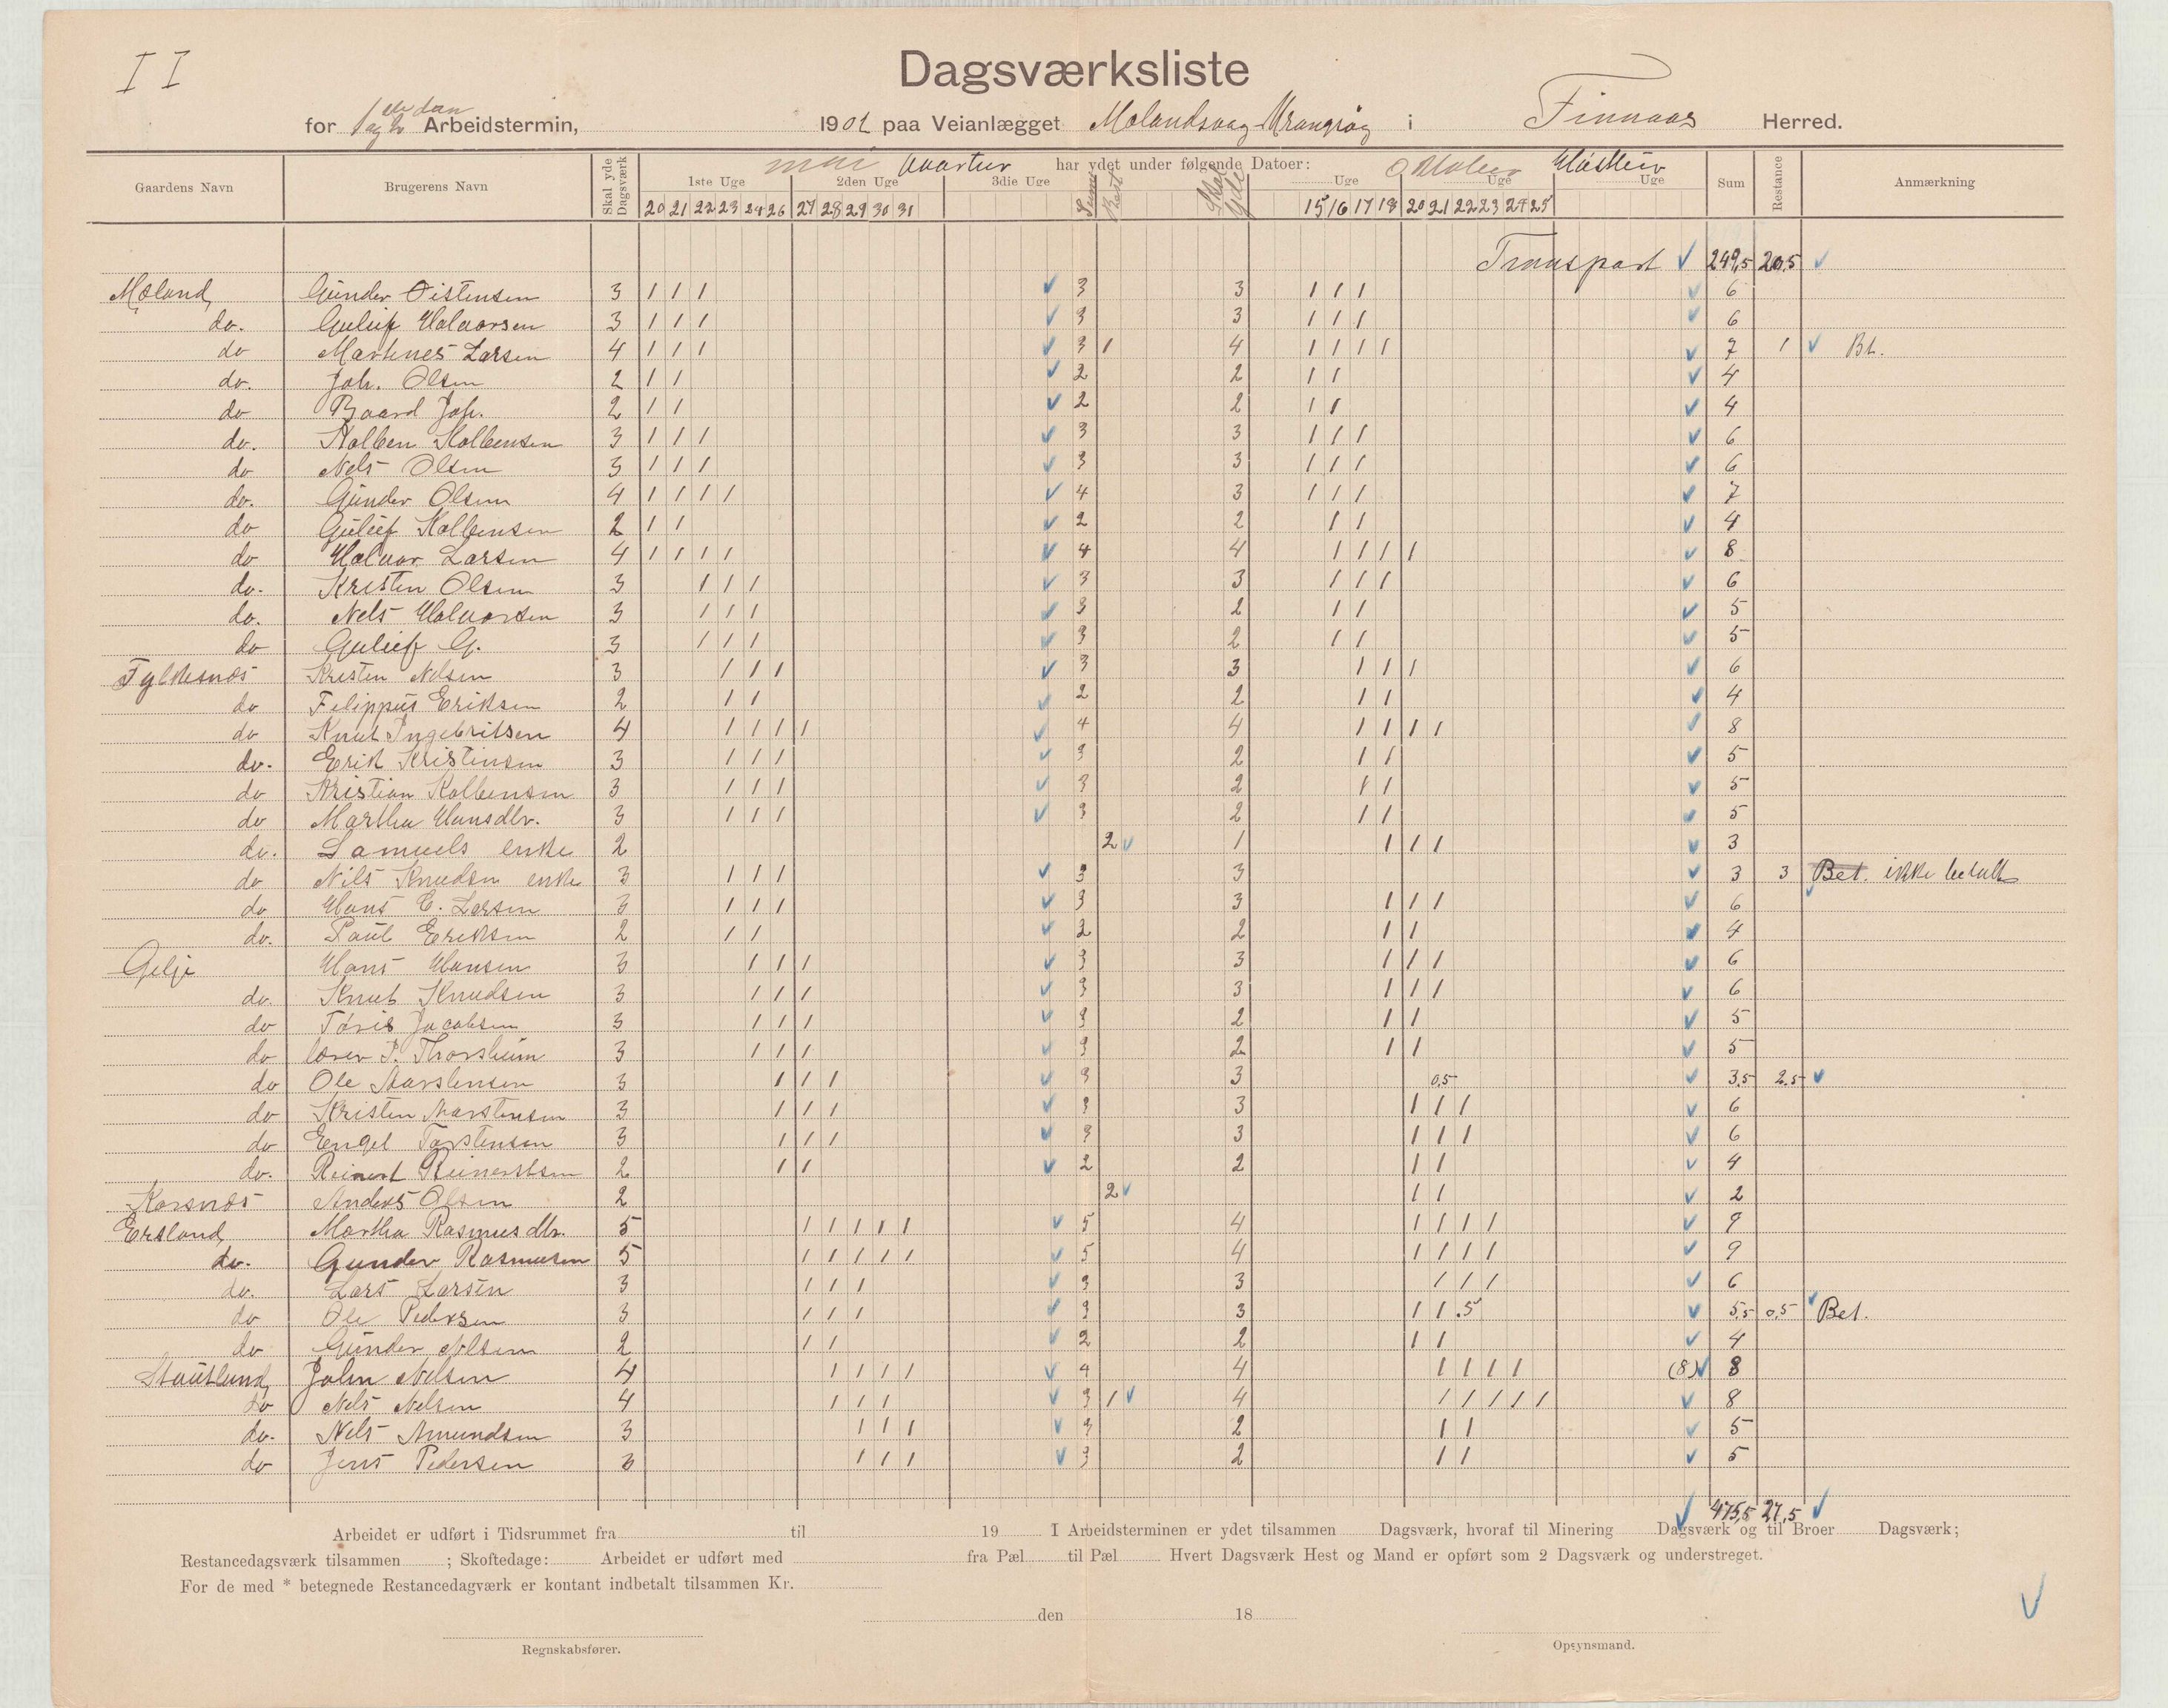 II
Dagsværksliste
for 1ste og 2den Arbeidstermin, 1902 paa Veianlægget Mælandsvaag-Krangvåg i Finnaas Herred.
Gaardens Navn Brugerens Navn Skal yde Dagsværk mai Vaartur har ydet under følgende Datoer: Oktober Høsttur Sum Restance Anmærkning
1ste Uge 2den Uge 3die Uge Sum Rest Skal yde Uge Uge Uge
20 21 22 23 24 26 27 28 29 30 31 15 16 17 18 20 21 22 23 24 25
Transport 249,5 20,5
Mæland Gunder Øistensen 3 1 1 1 3 3 1 1 1 6
do. Guleif Halvorsen 3 1 1 1 3 3 1 1 1 6
do Martines Larsen 4 1 1 1 3 1 4 1 1 1 1 7 1 Bt.
do. Joh. Olsen 2 1 1 2 2 1 1 4
do Baard Joh. 2 1 1 2 2 1 1 4
do. Kolben Kolbensen 3 1 1 1 3 3 1 1 1 6
do Nels Olsen 3 1 1 1 3 3 1 1 1 6
do. Gunder Olsen 4 1 1 1 1 4 3 1 1 1 7
do Guleif Kolbensen 2 1 1 2 2 1 1 4
do Halvor Larsen 4 1 1 1 1 4 4 1 1 1 1 8
do. Kristen Olsen 3 1 1 1 3 3 1 1 1 6
do. Nels Halvorsen 3 1 1 1 3 2 1 1 5
do Guleif G. 3 1 1 1 3 2 1 1 5
Fylkesnæs Kristen Nelsen 3 1 1 1 3 3 1 1 1 6
do Filippus Eriksen 2 1 1 2 2 1 1 4
do Knut Ingebritsen 4 1 1 1 1 4 4 1 1 1 1 8
do. Erik Kristensen 3 1 1 1 3 2 1 1 5
do Kristian Kolbensen 3 1 1 1 3 2 1 1 5
do Martha Hansdtr. 3 1 1 1 3 2 1 1 5
do. Samuels enke 2 2 1 1 1 1 3
do Nils Knudsen enke 3 1 1 1 3 3 3 3 Bet. ikke betalt
do Hans E. Larsen 3 1 1 1 3 3 1 1 1 6
do. Paul Eriksen 2 1 1 2 2 1 1 4
Gilje Hans Hansen 3 1 1 1 3 3 1 1 1 6
do. Knut Knudsen 3 1 1 1 3 3 1 1 1 6
do Tøris Jacobsen 3 1 1 1 3 2 1 1 5
do lærer P. Thorsheim 3 1 1 1 3 2 1 1 5
do Ole Marstensen 3 1 1 1 3 3 0,5 3,5 2,5
do Kristen Marstensen 3 1 1 1 3 3 1 1 1 6
do Engel Torstensen 3 1 1 1 3 3 1 1 1 6
do. Reinert Reinertsen 2 1 1 2 2 1 1 4
Korsnæs Anders Olsen 2 2 1 1 2
Ersland Martha Rasmusdtr. 5 1 1 1 1 1 5 4 1 1 1 1 9
do. Gunder Rasmusen 5 1 1 1 1 1 5 4 1 1 1 1 9
do. Lars Larsen 3 1 1 1 3 3 1 1 1 6
do Ole Pedersen 3 1 1 1 3 3 1 1 .5 5,5 0,5 Bet.
do Gunder Nelsen 2 1 1 2 2 1 1 4
Stautland John Nelsen 4 1 1 1 1 4 4 1 1 1 1 (8) 8
do Nels Nelsen 4 1 1 1 3 1 4 1 1 1 1 1 8
do. Nels Amundsen 3 1 1 1 3 2 1 1 5
do Jens Pedersen 3 1 1 1 3 2 1 1 5
475,5 27,5
Arbeidet er udført i Tidsrummet fra til 19 I Arbeidsterminen er ydet tilsammen Dagsværk, hvoraf til Minering Dagsværk og til Broer Dagsværk;
Restancedagsværk tilsammen ; Skoftedage: Arbeidet er udført med fra Pæl til Pæl Hvert Dagsværk Hest og Mand er opført som 2 Dagsværk og understreget.
For de med * betegnede Restancedagværk er kontant indbetalt tilsammen Kr.
den 18
Regnskabsfører. Opsynsmand.